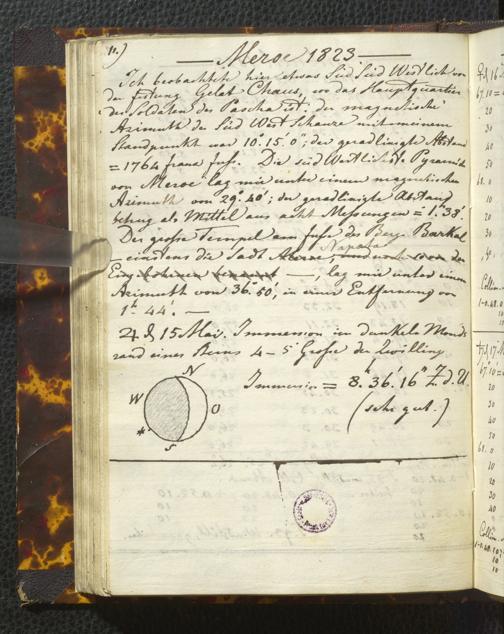 11.)
Meroe 1823
Ich beobachtete hier etwas Süd Süd Westlich von
der festung Gelat Chaus, wo das Hauptquartier
der Soldaten des Pascha ist; der magnetische
Azimuth der Süd West Schanze mit meinem
Standpunkt war 10°. 15'. 0"; der geradlinigte Abstand
= 1764 franz. fuss. Die süd Westlichste Pyramide
von Meroe lag mir unter einem magnetischen
Azimuth von 29°. 40'; der geradlinigte Abstand
betrug als Mittel aus acht Messungen = 1°. 38'.
Der große Tempel am Fuße des Bergs Barkal
Napata
— einstens die Stadt Meroe, und noch von den
Eingebohrnen genannt —, lag mir unter einem
Azimuth von 36°. 50', in einer Entfernung von
1° 44'. —
♃ d 15 Mai. Immersion im dunkeln Monds
rand eines Sterns 4–5 Große der Zwillinge
Immersion = 8h. 36'. 16" Z. d. U.
(sehr gut.)
N
W
O
*
S
67. 10
20
30
40
50
68. 0
10
20
30
40
67. 10
20
30
40
50
68. 0
10
20
30
40
50
10
10